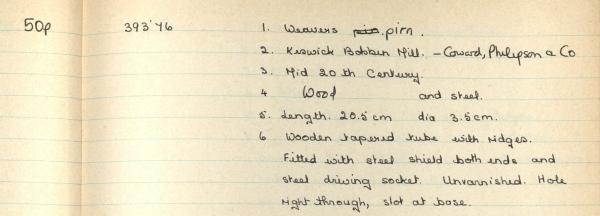 50p 393'76 1. Weavers pirn.
2. Keswick Bobbin Mill. - Coward, Philipson & Co
3. Mid 20th Century.
4 Wood and steel.
5. Length. 20.5 cm dia 3.5cm.
6 Wooden tapered tube with ridges.
Fitted with steel shield both ends and
steel driving socket. Unvarnished. Hole
right through, slot at base.